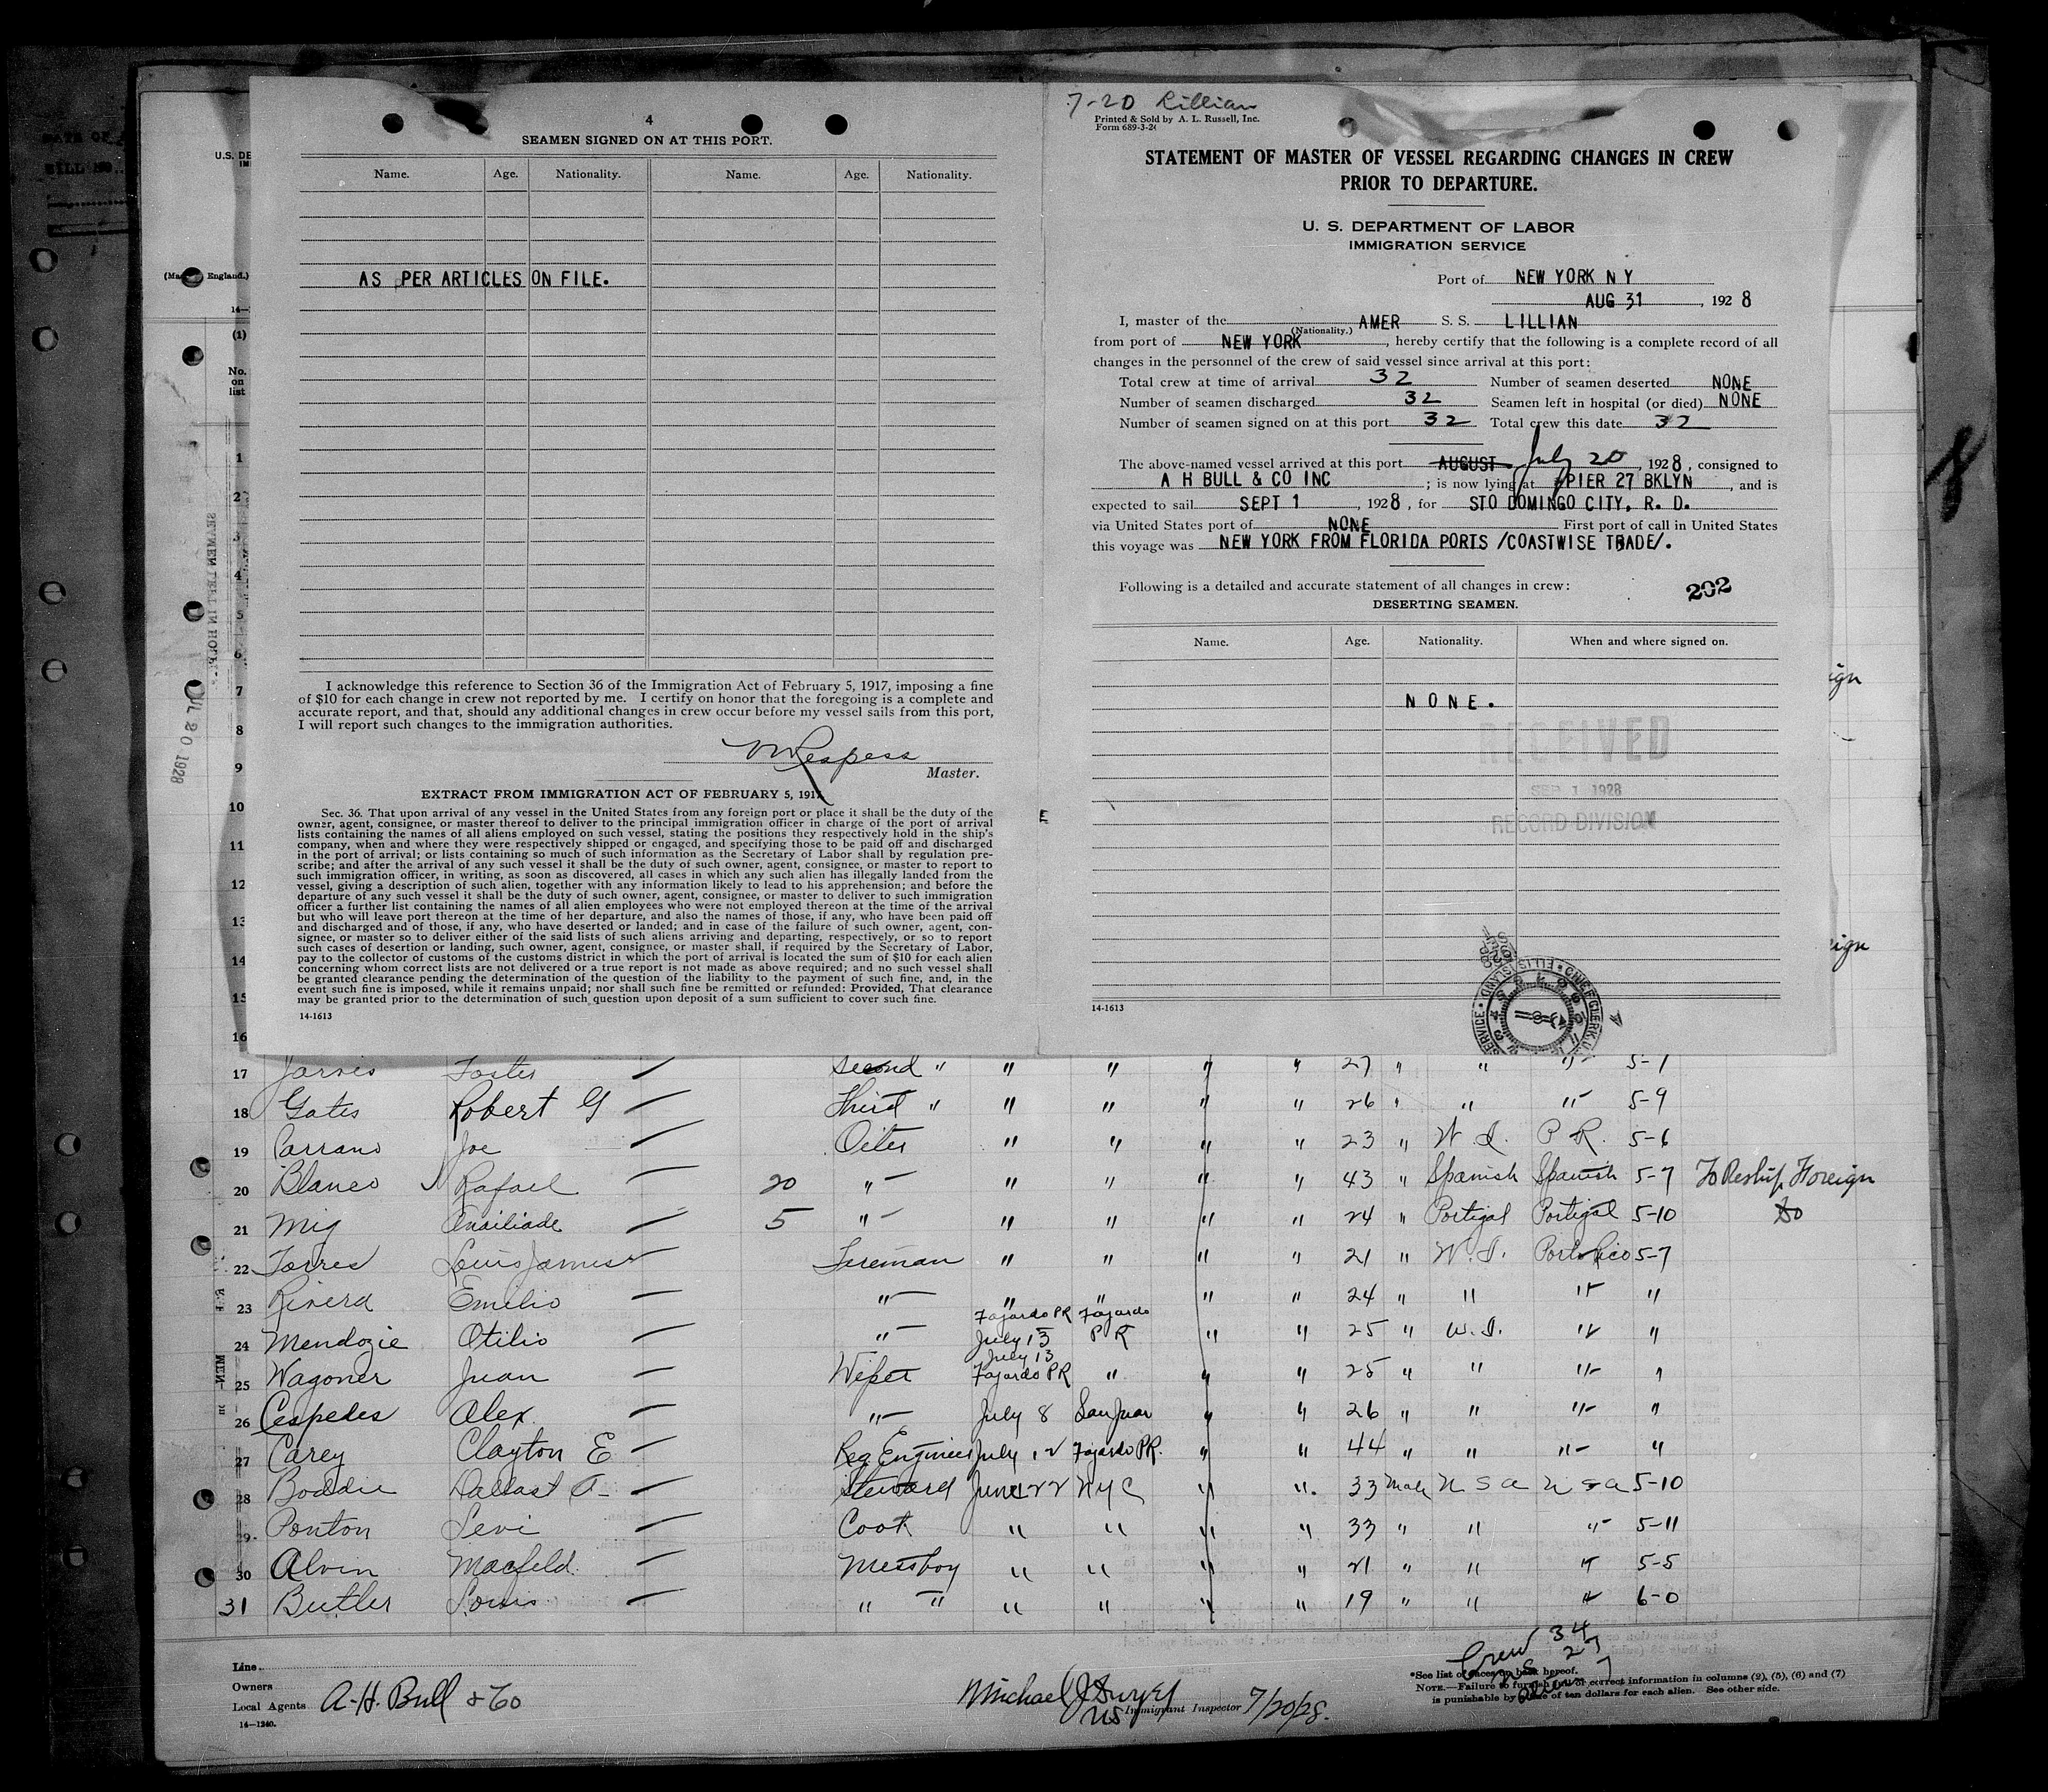 4
SEAMEN SIGNED ON AT THIS PORT.
Name. Age. Nationality. Name. Age. Nationality.
AS PER ARTICLES ON FILE.
I acknowledge this reference to Section 36 of the Immigration Act of February 5, 1917, imposing a fine
of $10 for each change in crew not reported by me. I certify on honor that the foregoing is a complete and
accurate report, and that, should any additional changes in crew occur before my vessel sails from this port,
I will report such changes to the immigration authorities.
Respess
Master.
EXTRACT FROM IMMIGRATION ACT OF FEBRUARY 5, 1917.
Sec. 36. That upon arrival of any vessel in the United States from any foreign port or place it shall be the duty of the
owner, agent, consignee, or master thereof to deliver to the principal immigration officer in charge of the port of arrival
lists containing the names of all aliens employed on such vessel, stating the positions they respectively hold in the ship's
company, when and where they were respectively shipped or engaged, and specifying those to be paid off and discharged
in the port of arrival; or lists containing so much of such information as the Secretary of Labor shall by regulation pre-
scribe; and after the arrival of any such vessel it shall be the duty of such owner, agent, consignee, or master to report to
such immigration officer, in writing, as soon as discovered, all cases in which any such alien has illegally landed from the
vessel, giving a description of such alien, together with any information likely to lead to his apprehension; and before the
departure of any such vessel it shall be the duty of such owner, agent, consignee, or master to deliver to such immigration
officer a further list containing the names of all alien employees who were not employed thereon at the time of the arrival
but who will leave port thereon at the time of her departure, and also the names of those, if any, who have been paid off
and discharged and of those, if any, who have deserted or landed; and in case of the failure of such owner, agent, con-
signee, or master so to deliver either of the said lists of such aliens arriving and departing, respectively, or so to report
such cases of desertion or landing, such owner, agent, consignee, or master shall, if required by the Secretary of Labor,
pay to the collector of customs of the customs district in which the port of arrival is located the sum of $10 for each alien
concerning whom correct lists are not delivered or a true report is not made as above required; and no such vessel shall
be granted clearance pending the determination of the question of the liability to the payment of such fine, and, in the
event such fine is imposed, while it remains unpaid; nor shall such fine be remitted or refunded: Provided, That clearance
may be granted prior to the determination of such question upon deposit of a sum sufficient to cover such fine.
14-1613
7-20 Lillian
Printed & Sold by A. L. Russell, Inc.
Form 689-3-26
STATEMENT OF MASTER OF VESSEL REGARDING CHANGES IN CREW
PRIOR TO DEPARTURE.
U. S. DEPARTMENT OF LABOR
IMMIGRATION SERVICE
Port of NEW YORK N Y
AUG 31, 1928
I, master of the AMER S. S. LILLIAN
(Nationality.)
from port of NEW YORK, hereby certify that the following is a complete record of all
changes in the personnel of the crew of said vessel since arrival at this port:
Total crew at time of arrival 32 Number of seamen deserted NONE
Number of seamen discharged 32 Seamen left in hospital (or died) NONE
Number of seamen signed on at this port 32 Total crew this date 32
The above-named vessel arrived at this port AUGUST July 20, 1928, consigned to
A H BULL & CO INC ; is now lying at PIER 27 BKLYN, and is
expected to sail SEPT 1, 1928, for STO DOMINGO CITY, R. D.
via United States port of NONE First port of call in United States
this voyage was NEW YORK FROM FLORIDA PORTS /COASTWISE TRADE/.
Following is a detailed and accurate statement of all changes in crew: 202
DESERTING SEAMEN.
Name. Age. Nationality. When and where signed on.
NONE.
RECEIVED
SEP 1 1928
RECORD DIVISION
14-1613
U.S. DE
England.)
(1)
No.
on
list
1
2
3
4
5
6
7
8
9
10
11
12
13
14
15
16
JUL 20 1928
17 Jarvis Foster Second " " " " " 27 " " " 5-1
18 Gates Robert G Third " " " " " 26 " " " 5-9
19 Parrano Joe Oiler " " " " 23 " W. I. P R. 5-6
20 Blanco Rafael 20 " " " " " 43 " Spanish Spanish 5-7 To Reship Foreign
21 Mig 5 " " " " " 24 " Portigal Portigal 5-10 Do
22 Torres Louis James Fireman " " " " 21 " W. I. Porto Rico 5-7
23 Rivera Emilio " " " " " 24 " " " "
24 Mendozie Otilio " Fajardo PR July 13 Fajardo P R " " 25 " W. I. " "
25 Wagoner Juan Wiper July 13 Fajardo PR " " " 25 " " " "
26 Cespedes Alex. " July 8 San Juan " " 26 " " " "
27 Carey Clayton E Engineer July 12 Fajardo P.R. " " 44 " " " "
28 Boddie Dallast A Steward June 22 N Y C " " 33 Male U S A U S A 5-10
29 Ponton Levi Cook " " " " 33 " " " 5-11
30 Alvin Macfeld Messboy " " " " 21 " " " 5-5
31 Butler Louis " " " " " " 19 " " " 6-0
Line
Owners
Local Agents A. H. Bull & Co
14-1240.
Michael J.
Immigrant Inspector 7/20/28.
Crew 34
US 27
7
*See list of races on back hereof.
NOTE.—Failure to furnish full or correct information in columns (2), (5), (6) and (7)
is punishable by fine of ten dollars for each alien. See other side.